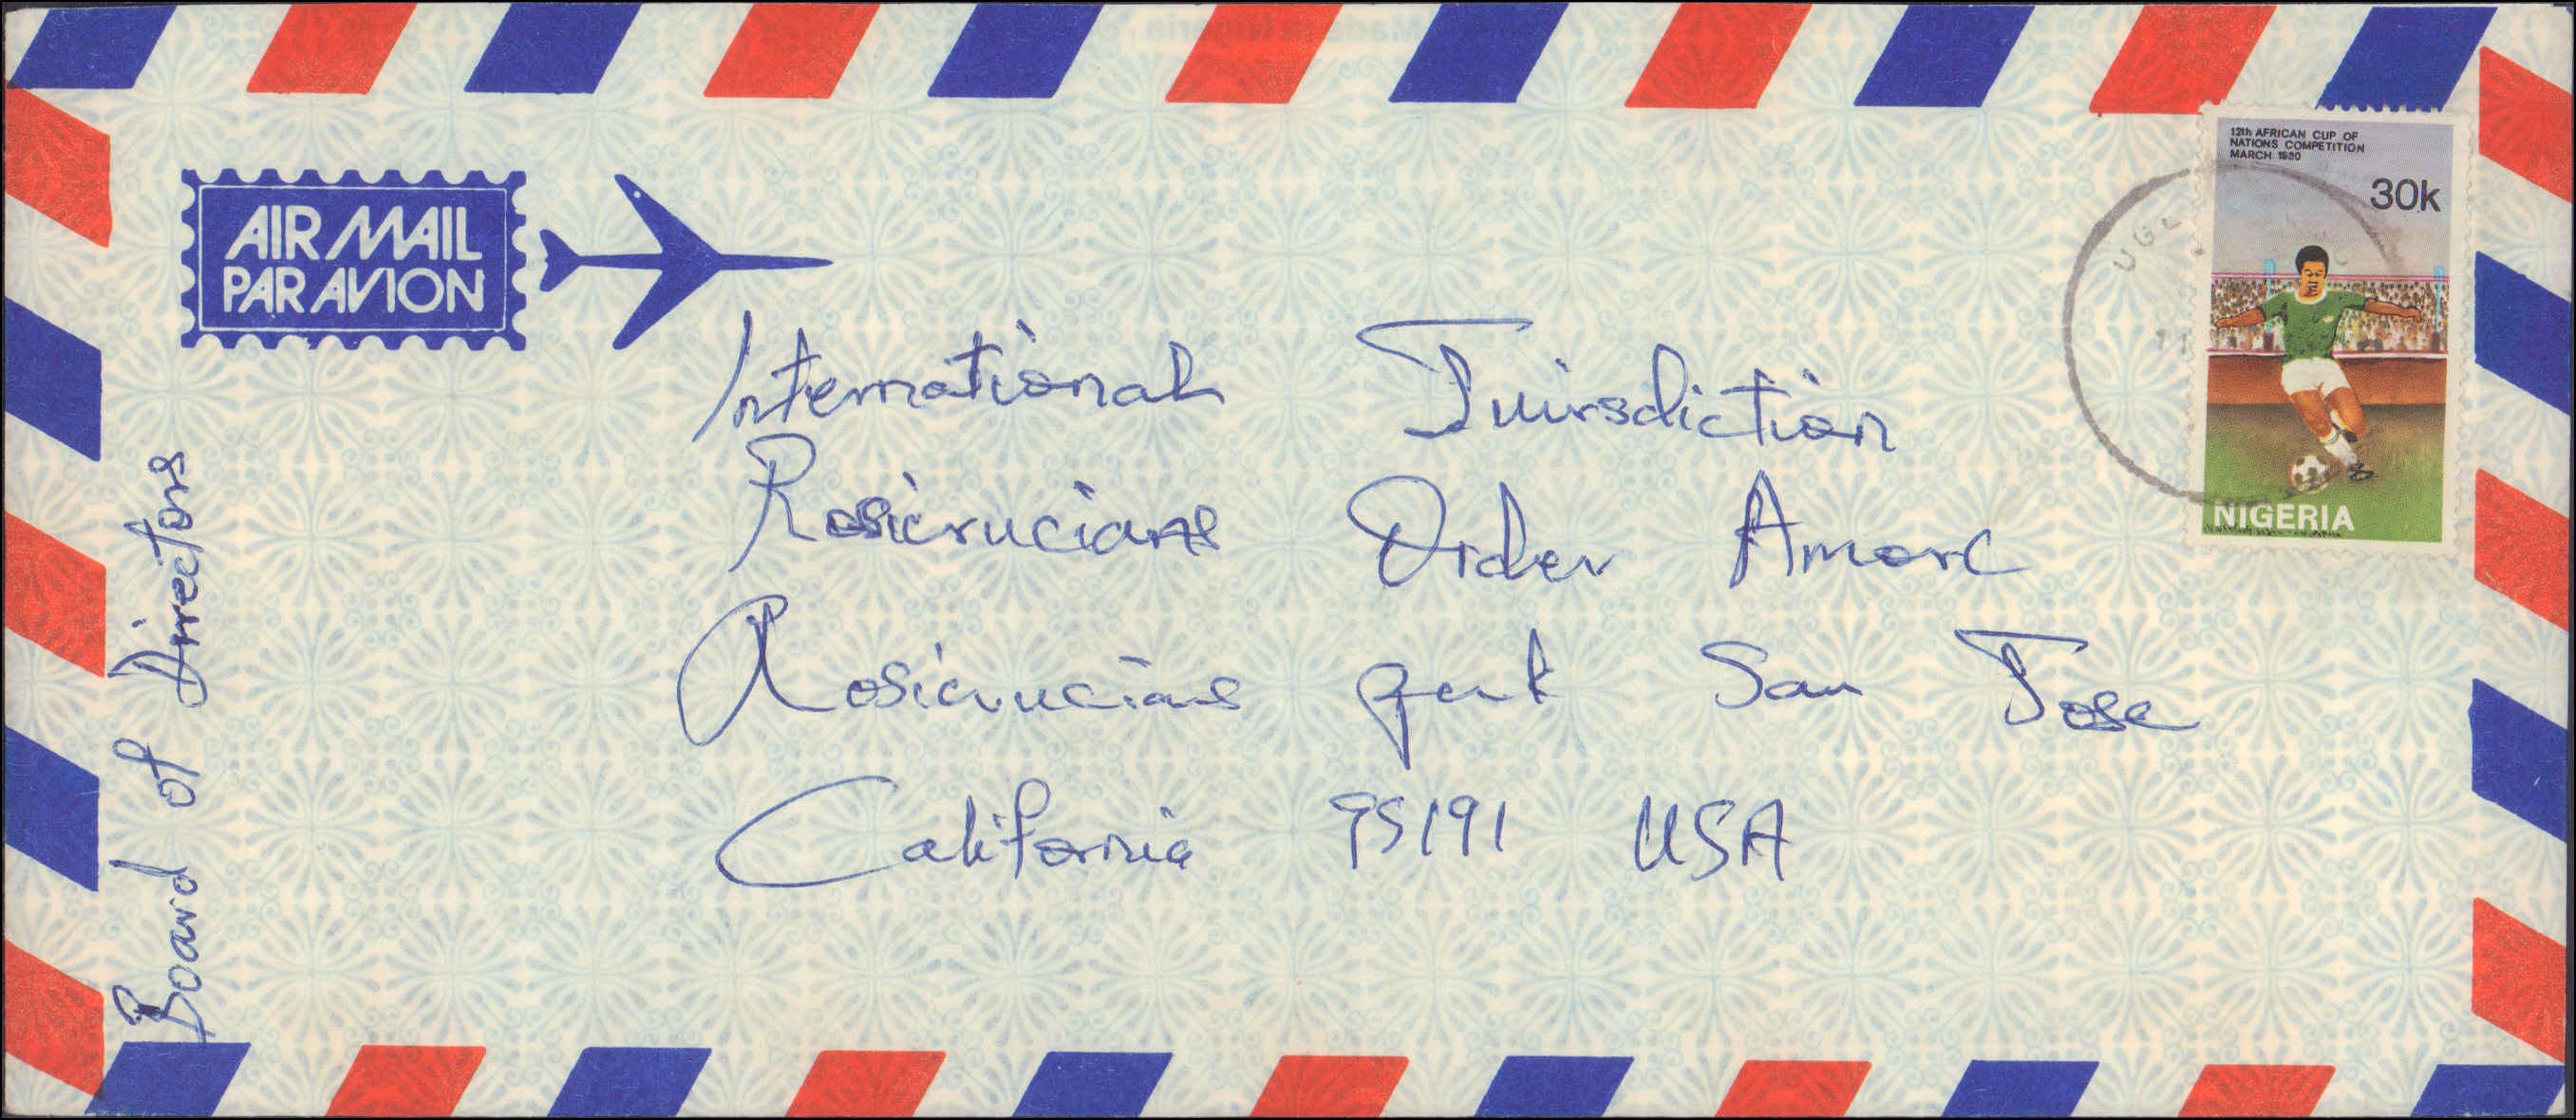 AIR MAIL
PAR AVION
12th AFRICAN CUP OF
NATIONS COMPETITION
MARCH 1980
30k
NIGERIA
International Juirsdiction
Rosicrucians Order Amorc
Rosicrucians park San Jose
California 95191 USA
Board of Directors